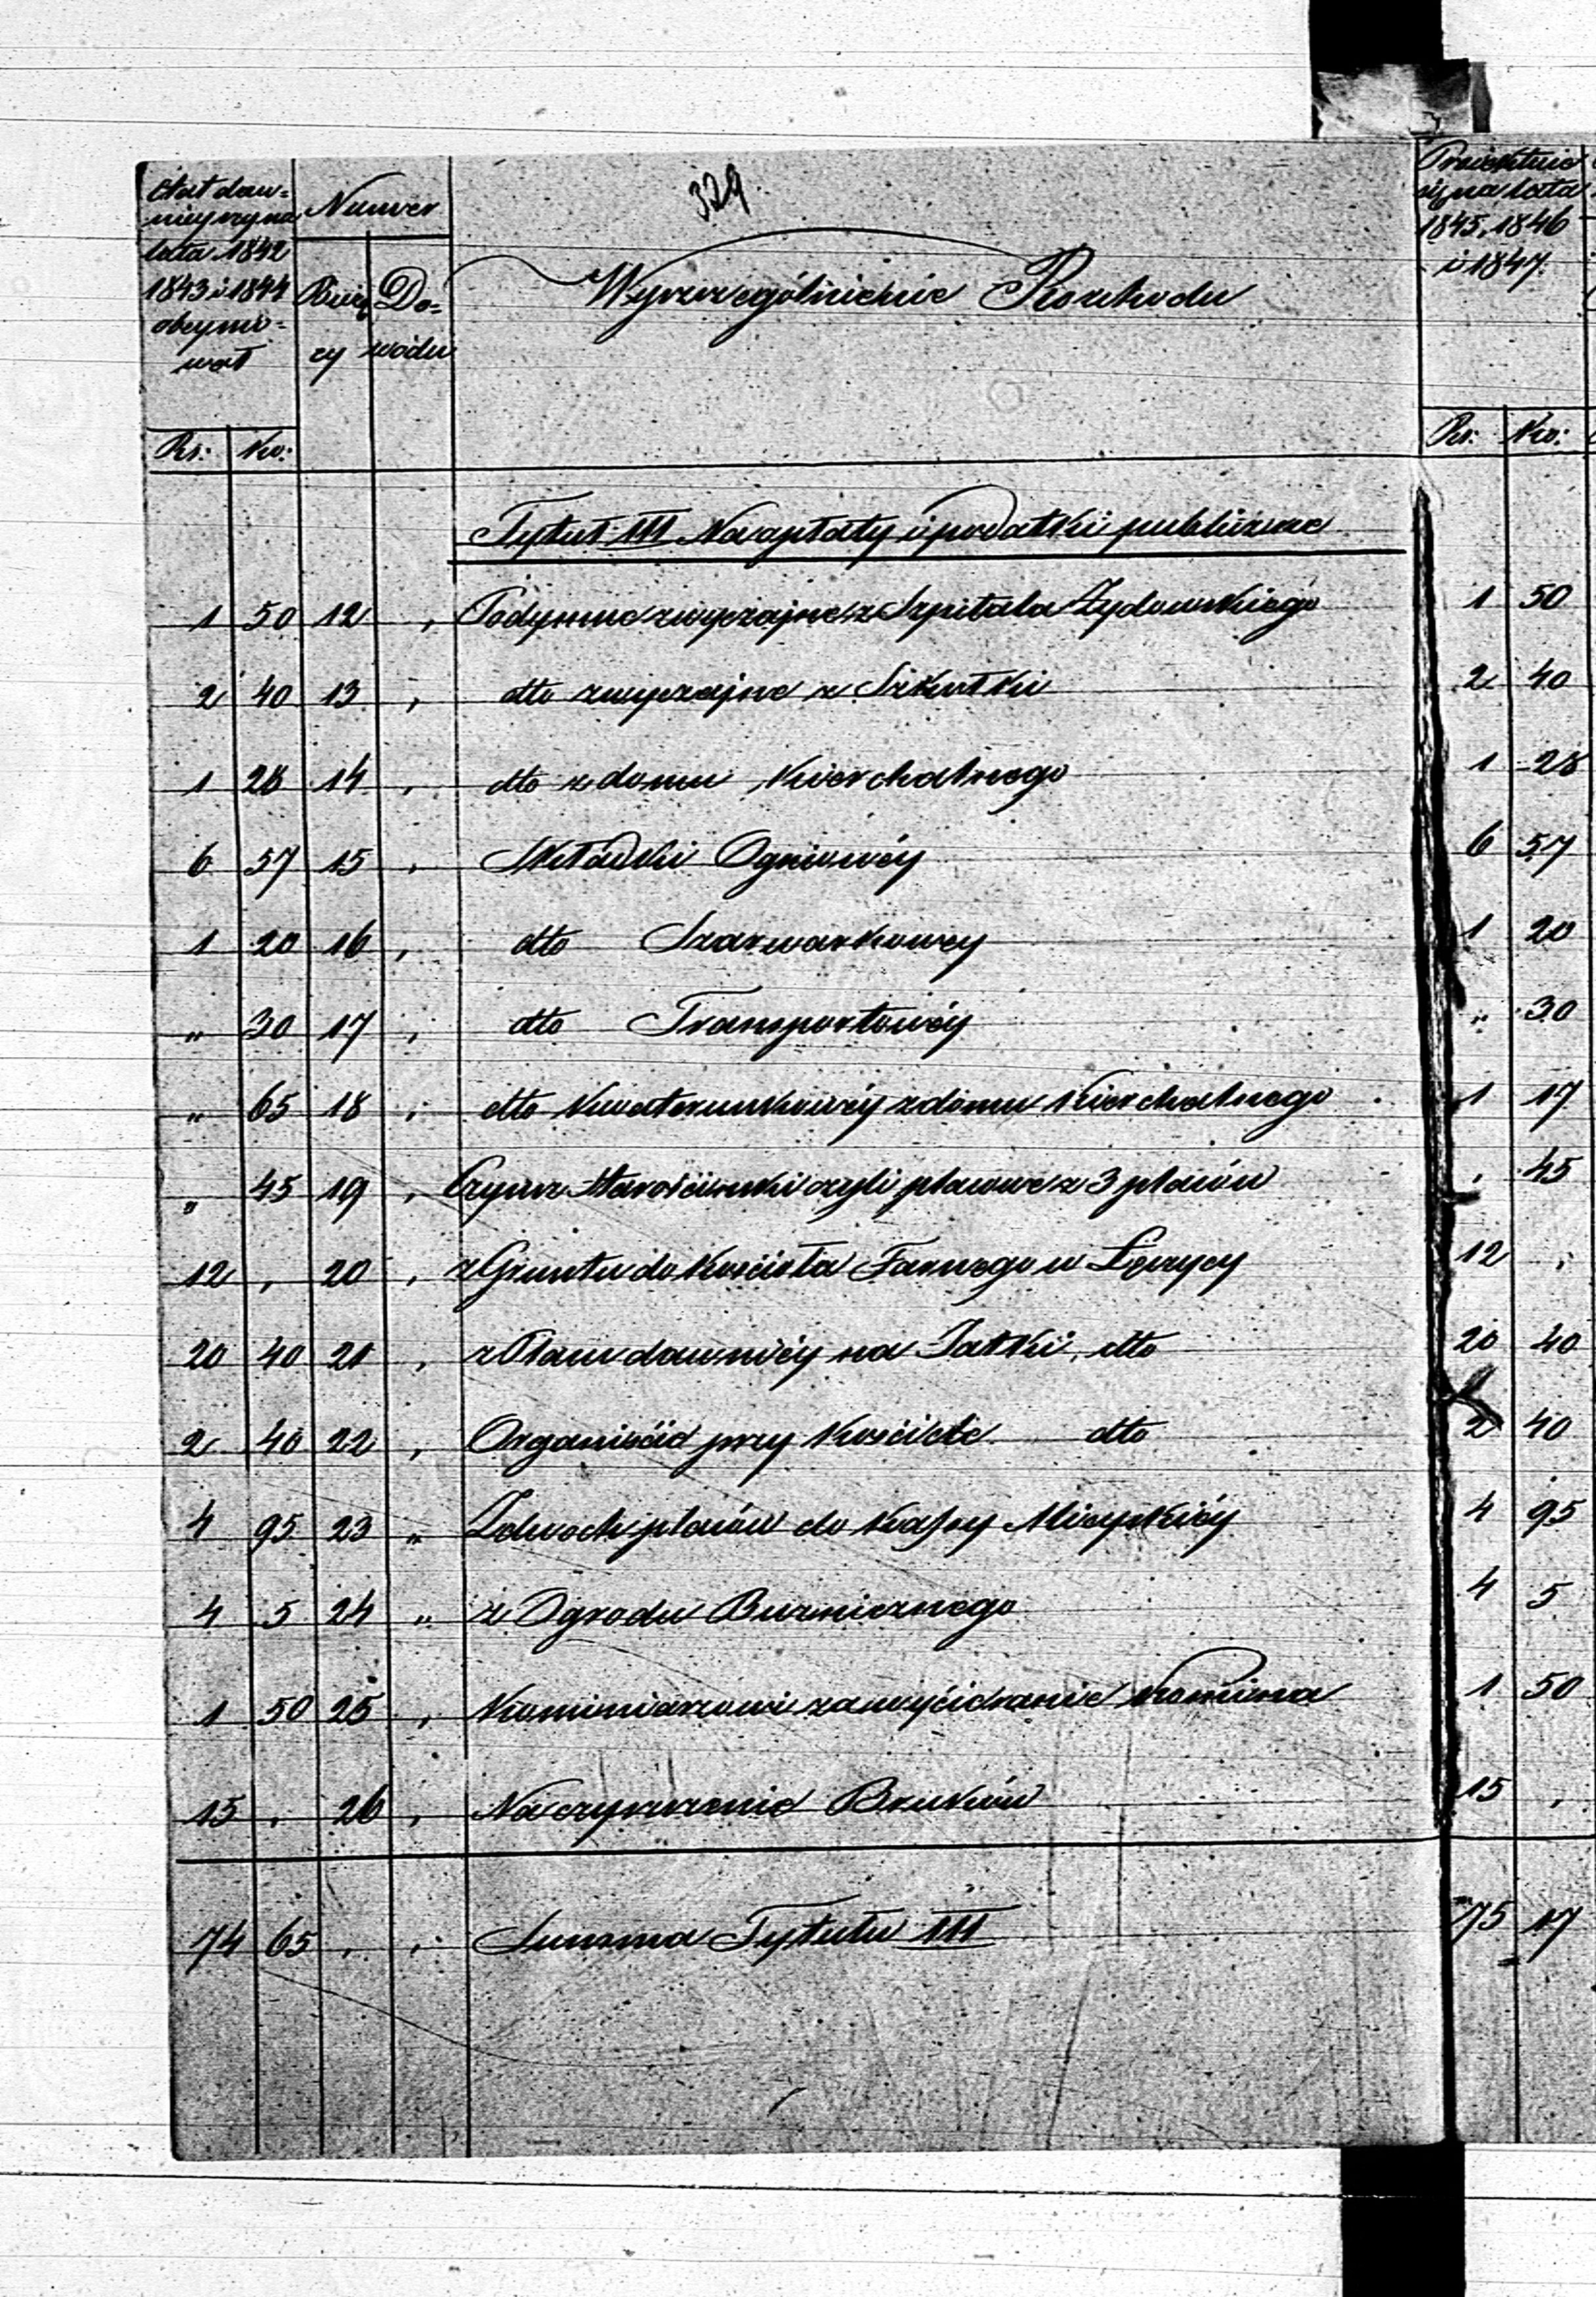 329.
Etat daw=
niejszy na
lata 1842
1843 i 1844
obeymo=
wał
Numer
Bieżą
cy
Do=
wodu
Wyszczególnienie Rozchodu
Proiektuie
się na lata
1845, 1846
i 1847.
Rs: Ko: Rs: Ko:
Tytuł III Na opłaty i podatki publiczne
1 50 12 , Podymne zwyczajne z Szpitala Żydowskiego 1 50
2 40 13 , dto zwyczajne z Szkutki 2 40
1 28 14 , dto z domu Kierchalnego 1 28
6 57 15 , Składki Ogniowéy 6 57
1 20 16 , dto Szarwarkowey 1 20
" 30 17 , dto Transportowéy " 30
" 65 18 , dto Kwaterunkowéy z domu Kierchalnego 1 17
" 45 19 , Czynsz Starościński czyli placowe z 3 placów , 45
12 , 20 , z Gruntu do Kościoła Farnego w Łęczycy 12 ,
20 40 21 , z Placu dawniéy na Jatki, dto 20 40
2 40 22 , Organiście przy Kościele dto 2 40
4 95 23 " Z dwoch placów do Kassy Mieyskiéy 4 95
4 5 24 " z Ogrodu Bużnicznego 4 5
1 50 25 , Kominiarzowi za wycieranie Komina 1 50
15 , 26 , Na czyszczenie Bruków 15 ,
74 65 , , Summa Tytułu III 75 17